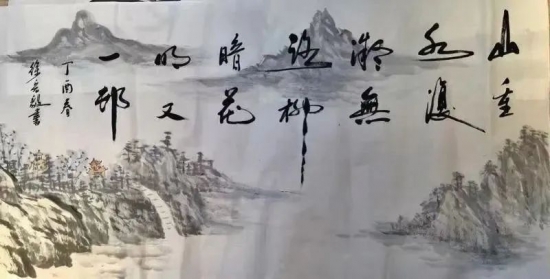 山重
水復
疑無
路柳
暗花
明又
一邨
丁酉春
徐書